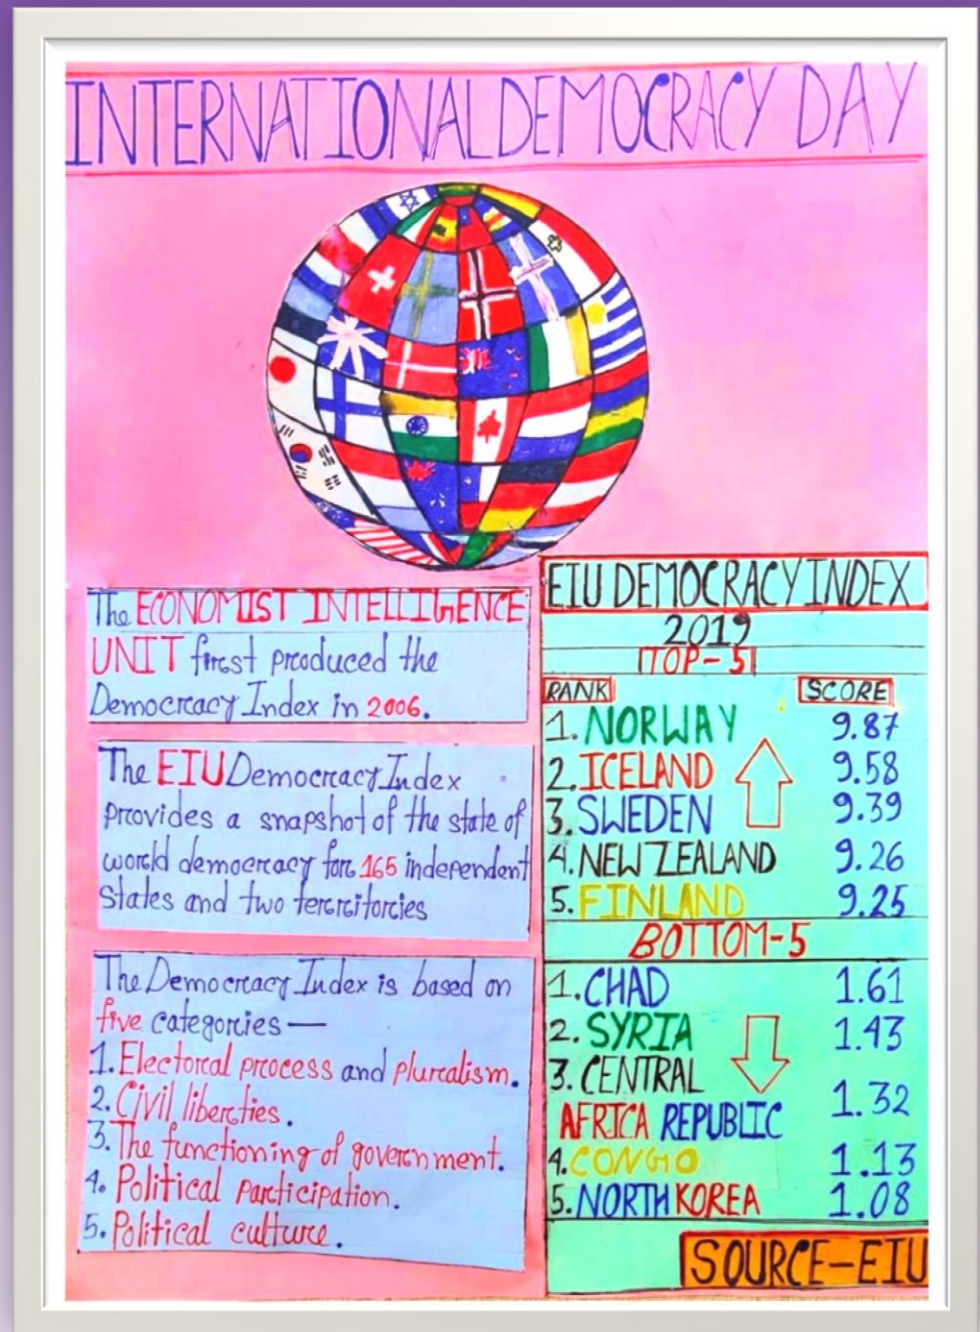 INTERNATIONAL DEMOCRACY DAY
The ECONOMIST INTELLIGENCE
UNIT first produced the
Democracy Index in 2006.
The EIU Democracy Index
Provides a snapshot of the state of
world democracy for 165 independent
States and two territories
The Democracy Index is based on
five categories —
1. Electoral process and pluralism.
2. Civil liberties.
3. The functioning of government.
4. Political Participation.
5. Political culture.
EIU DEMOCRACY INDEX
2019
TOP-5
RANK SCORE
1. NORWAY 9.87
2. ICELAND 9.58
3. SWEDEN 9.39
4. NEW ZEALAND 9.26
5. FINLAND 9.25
BOTTOM-5
1. CHAD 1.61
2. SYRIA 1.43
3. CENTRAL
AFRICA REPUBLIC 1.32
4. CONGO 1.13
5. NORTH KOREA 1.08
SOURCE-EIU